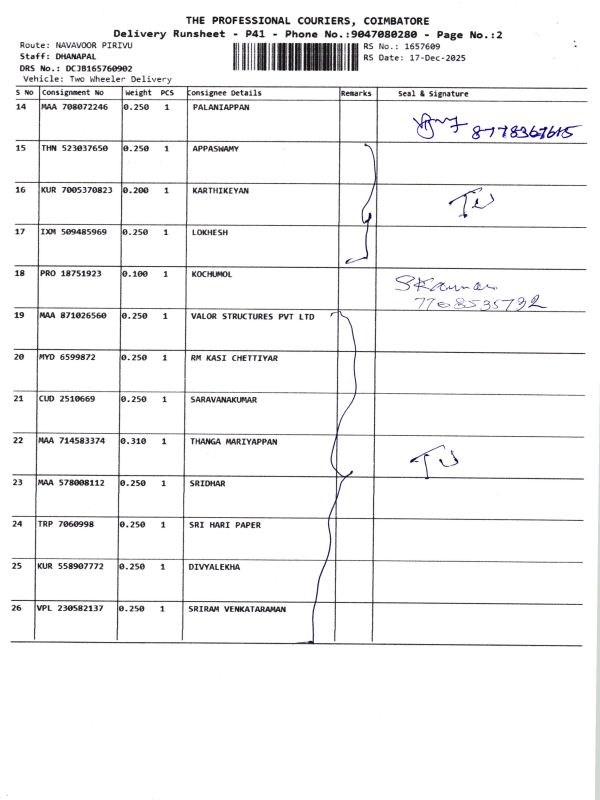 THE PROFESSIONAL COURIERS, COIMBATORE
Delivery Runsheet - P41 - Phone No.:9047080280 - Page No.:2
Route: NAVAVOOR PIRIVU
RS No.: 1657609
Staff: DHANAPAL
RS Date: 17-Dec-2025
DRS No.: DCJB165760902
Vehicle: Two Wheeler Delivery
S No Consignment No Weight PCS Consignee Details Remarks Seal & Signature
14 MAA 708072246 0.250 1 PALANIAPPAN
8778367615
15 THN 523037650 0.250 1 APPASWAMY
16 KUR 7005370823 0.200 1 KARTHIKEYAN
17 IXM 509485969 0.250 1 LOKHESH
18 PRO 18751923 0.100 1 KOCHUMOL
7708535732
19 MAA 871026560 0.250 1 VALOR STRUCTURES PVT LTD
20 MYD 6599872 0.250 1 RM KASI CHETTIYAR
21 CUD 2510669 0.250 1 SARAVANAKUMAR
22 MAA 714583374 0.310 1 THANGA MARIYAPPAN
23 MAA 578008112 0.250 1 SRIDHAR
24 TRP 7060998 0.250 1 SRI HARI PAPER
25 KUR 558907772 0.250 1 DIVYALEKHA
26 VPL 230582137 0.250 1 SRIRAM VENKATARAMAN